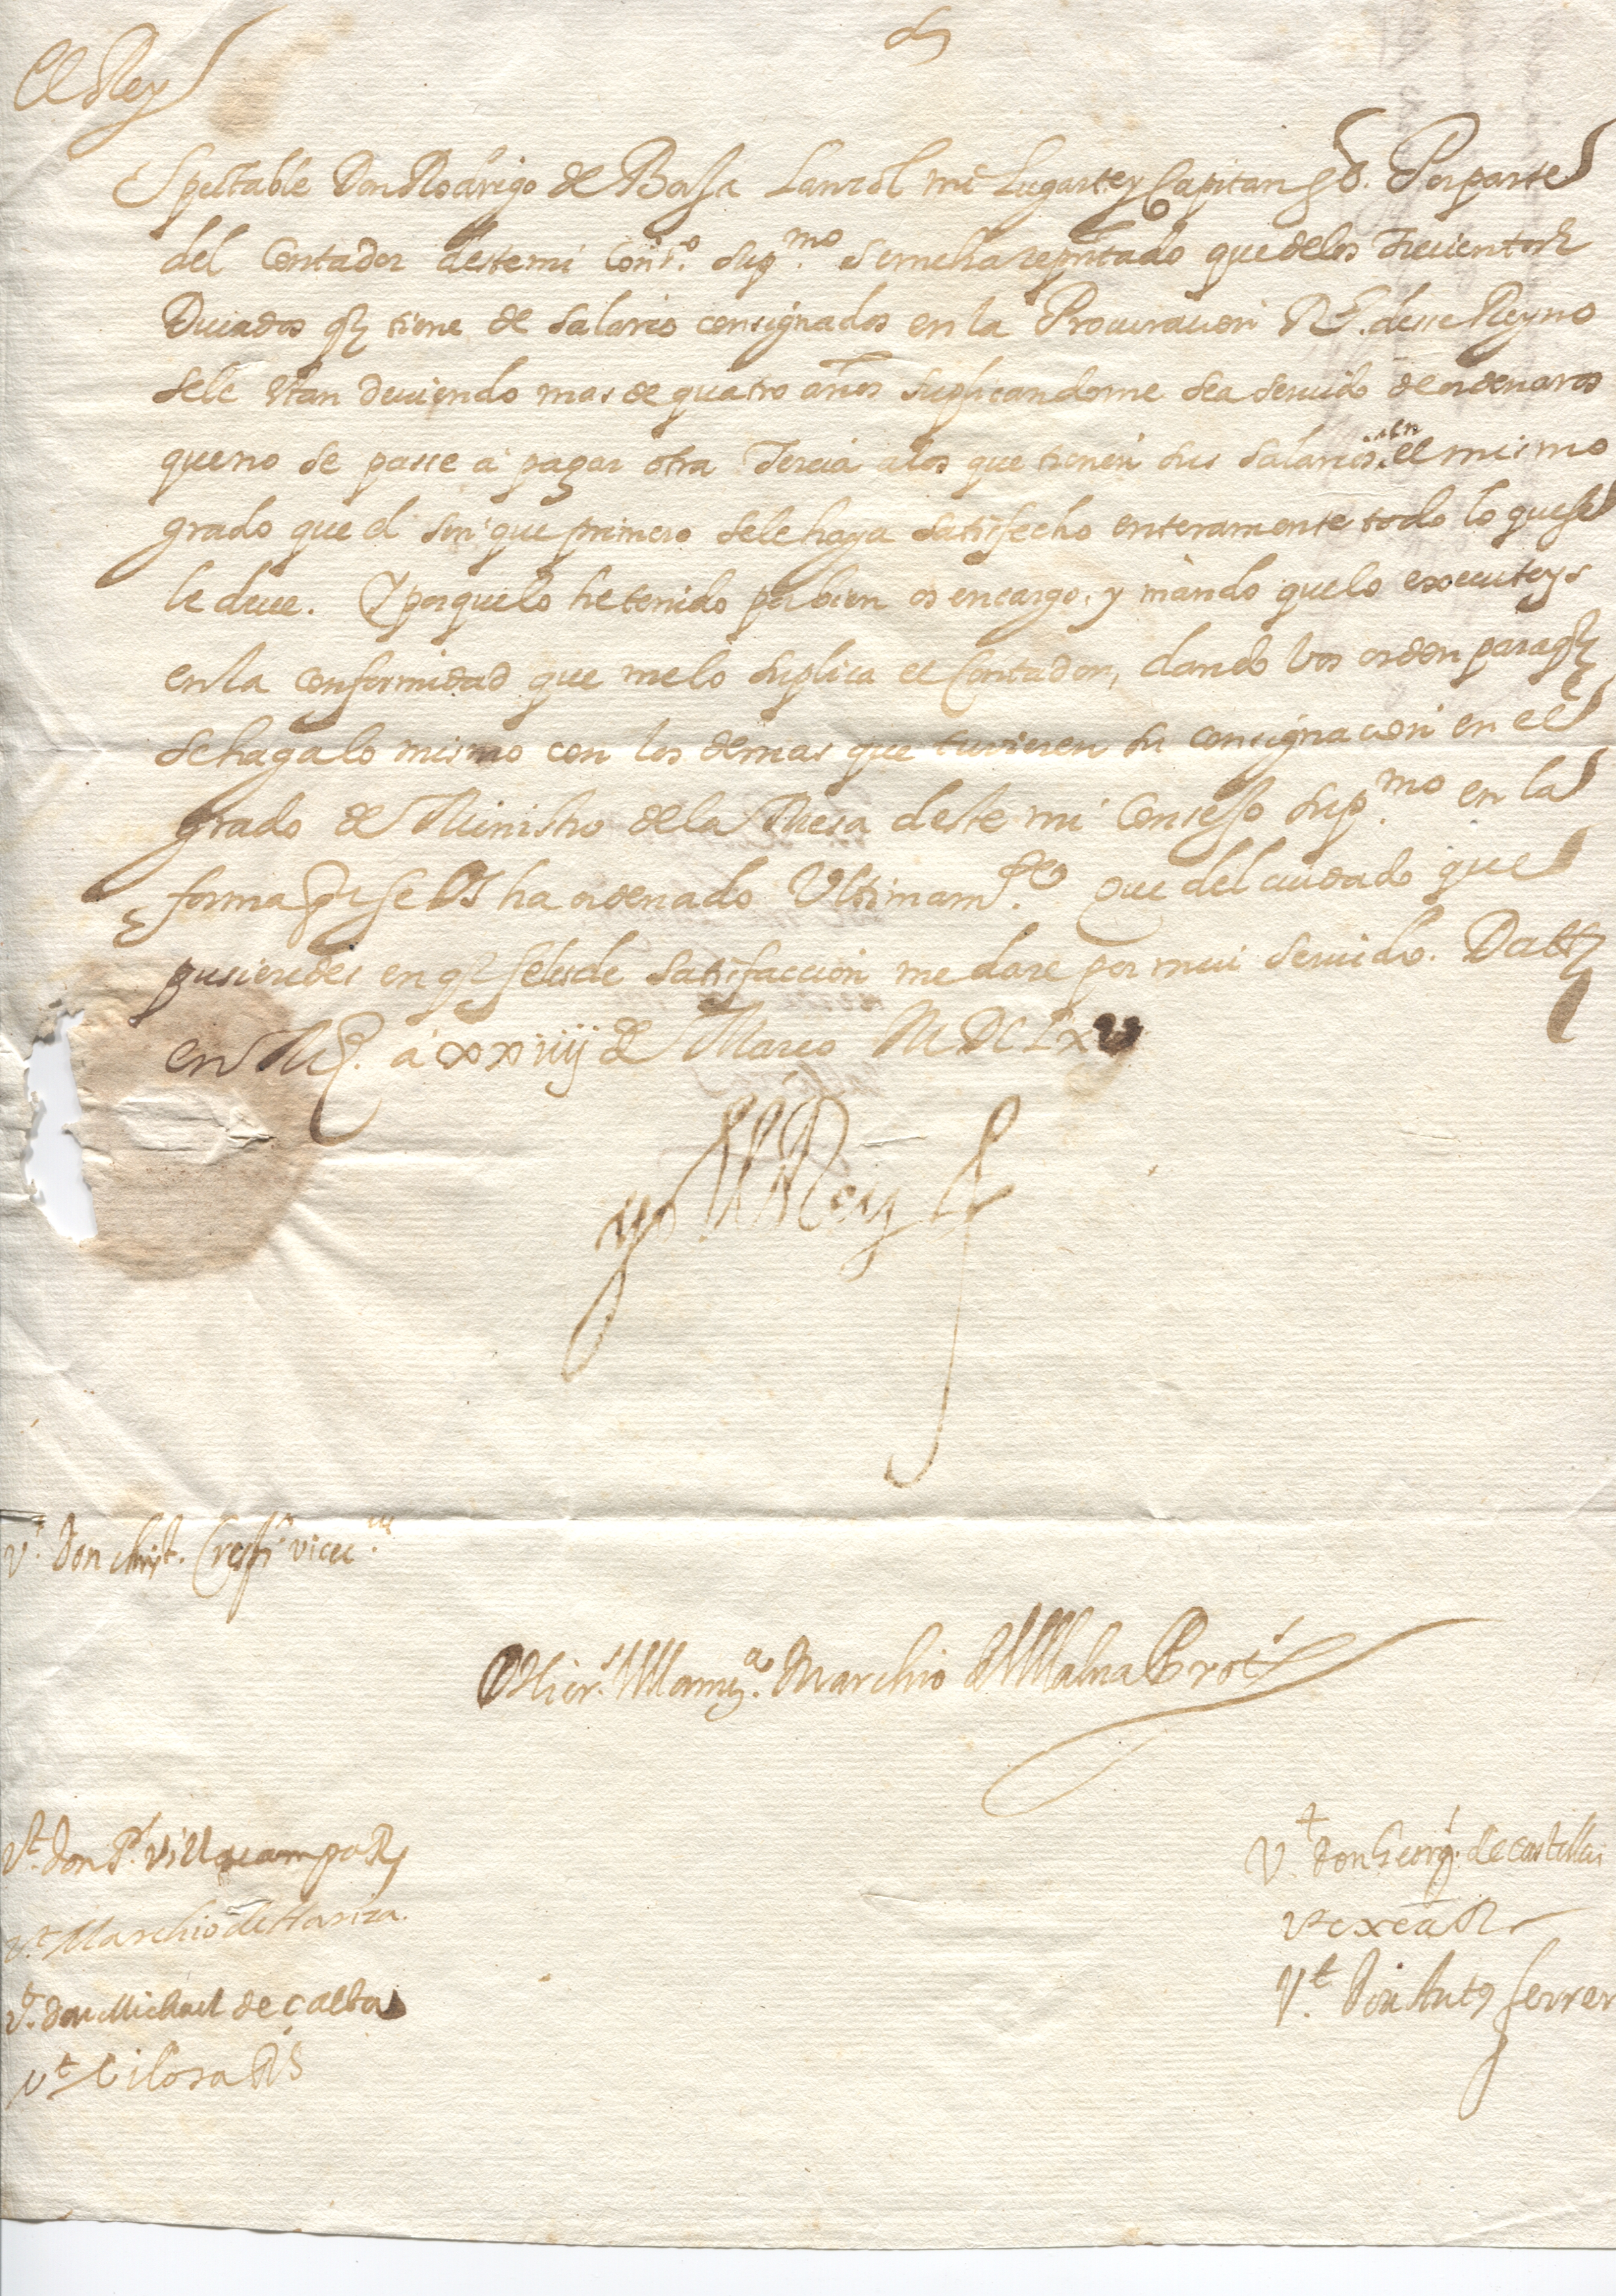 El Rey
Spectable Don Rodrigo de Borja Lanzol mi Lugarte y Capitan Gl. Por parte
del Contador deste mi Cons.º Sup.mo se me ha repñtado que de los trecientos
Ducados q tiene de salario consignados en la Procuracion Rl. desse Reyno
se le estan deviendo mas de quatro años suplicandome sea servido de ordenaros
que no se passe a pagar otra Tercia a los que tienen sus salarios en el mismo
grado que el sin que primero se le haya satisfecho enteramente todo lo que se
le deve. Y porque lo he tenido por bien os encargo, y mando que lo executeys
en la conformidad que me lo suplica el Contador, dando vos orden para q
se haga lo mismo con los demas que tuvieren su consignacion en el
grado de Ministro de la Mesa deste mi Consejo Sup.mo en la
forma q se os ha ordenado Ultimam.te Que del cuidado que
pusieredes en q se les de satisfaccion me dare por mui servido. Datt
en Md. a xxiiij de Março MDCLXV
yo el Rey
V.t don Christ. Crespi vicec.us
Hier.s Villanu.a Marchio de Villalua Prot.s
V.t don P. Villacampa R
V.t Marchio de Hariza.
V.t don Michael de Çalba
V.t Lilosa RS
V.t don Georg. de Castellvi
V.t exea R
V.t Don Ant Ferrer